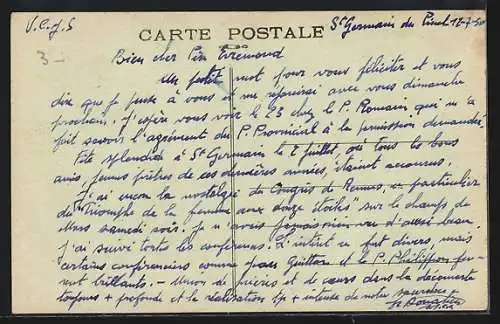 V.C.J.S
CARTE POSTALE
St Germain du Pinel 12-7-50
3-
Bien cher Père Evremond
Un petit mot pour vous féliciter et vous
dire que je pense à vous et me réjouirai avec vous dimanche
prochain. J'espère vous voir le 23 chez le P. Romain qui m'a
fait savoir l'agrément du P. Provincial à la permission demandée.
Fête splendide à St Germain le 2 juillet, où tous les bons
amis, jeunes prêtres de ces dernières années, étaient accourus.
J'ai encore la nostalgie du Congrès de Rennes, en particulier
du "Triomphe de la femme aux douze étoiles" sur le champs de
Mars samedi soir. Je n'avais jamais rien vu d'aussi beau.
J'ai suivi toutes les conférences. L'intérêt en fut divers, mais
certains conférenciers comme Guitton et le P. Philippon furent
brillants. - Union de prières et de cœurs dans la découverte
toujours + profonde et la réalisation tjs + intense de notre sacerdoce